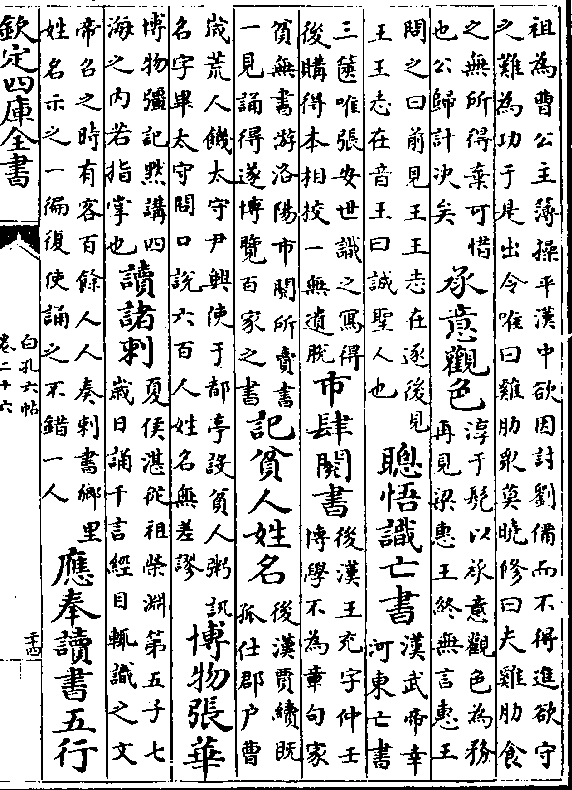 祖為曹公主簿操平漢中欲因討劉備而不得進欲守
之難為功于是出令唯曰雞肋衆莫曉修曰夫雞肋食
之無所得棄可惜
也公歸計決矣
承意觀色
淳于髡以承意觀色為務
再見梁惠王終無言惠王
問之曰前見王王志在逐後見
王王志在音王曰誠聖人也
聰悟識亡書
漢武帝幸
河東亡書
三篋唯張安世識之寫得
後購得本相挍一無遺脫
市肆閱書
後漢王充字仲壬
博學不為章句家
貧無書游洛陽市閱所賣書
一見誦得遂博覽百家之書
記貧人姓名
後漢賈續既
孤仕郡户曹
歲荒人饑太守尹興使于都亭設貧人粥訊
名字畢太守問口說六百人姓名無差謬
博物張華
博物彊記黙講四
海之内若指掌也
讀諸刺
夏侯湛從祖柴淵第五子七
歲日誦千言經目輒識之文
帝召之時有客百餘人人奏刺書鄉里
姓名示之一徧復使誦之不錯一人
應奉讀書五行
欽定四庫全書
白孔六帖
卷二十六
二十四